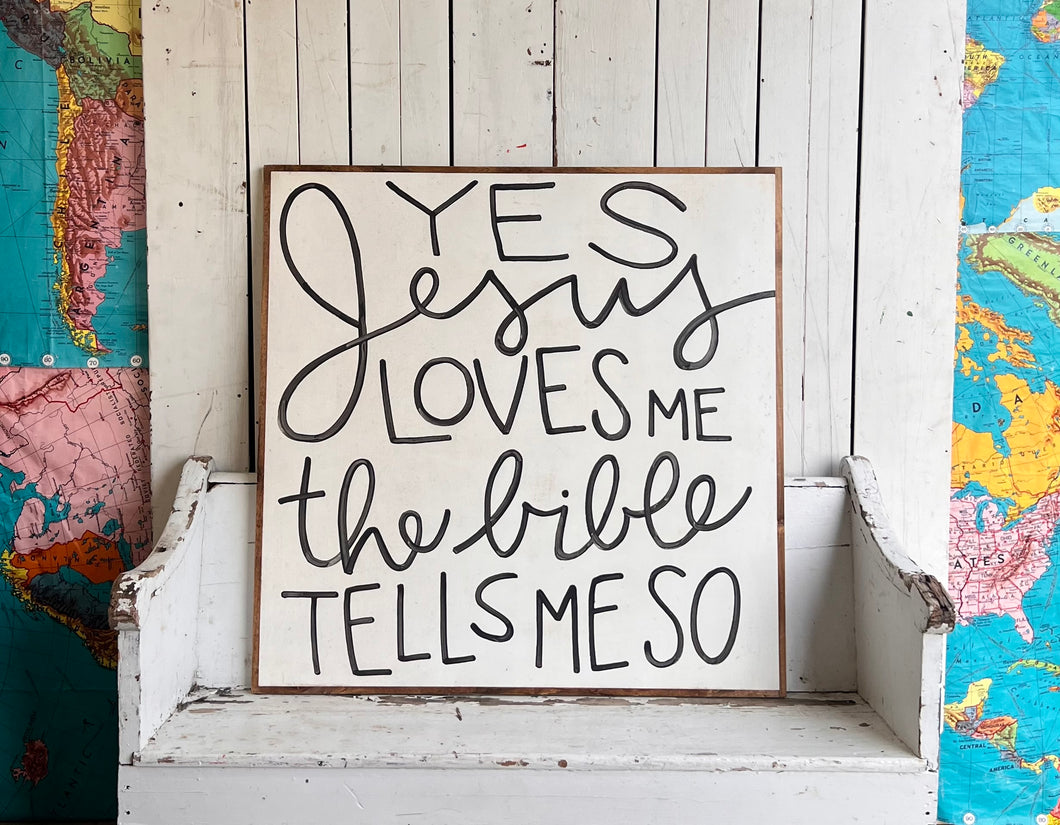 YES
Jesus
LOVES ME
the bible
TELLS ME SO
BOLIVIA
ARGENTINA
GREENL
DA
ATES
CENTRAL
AMERICA